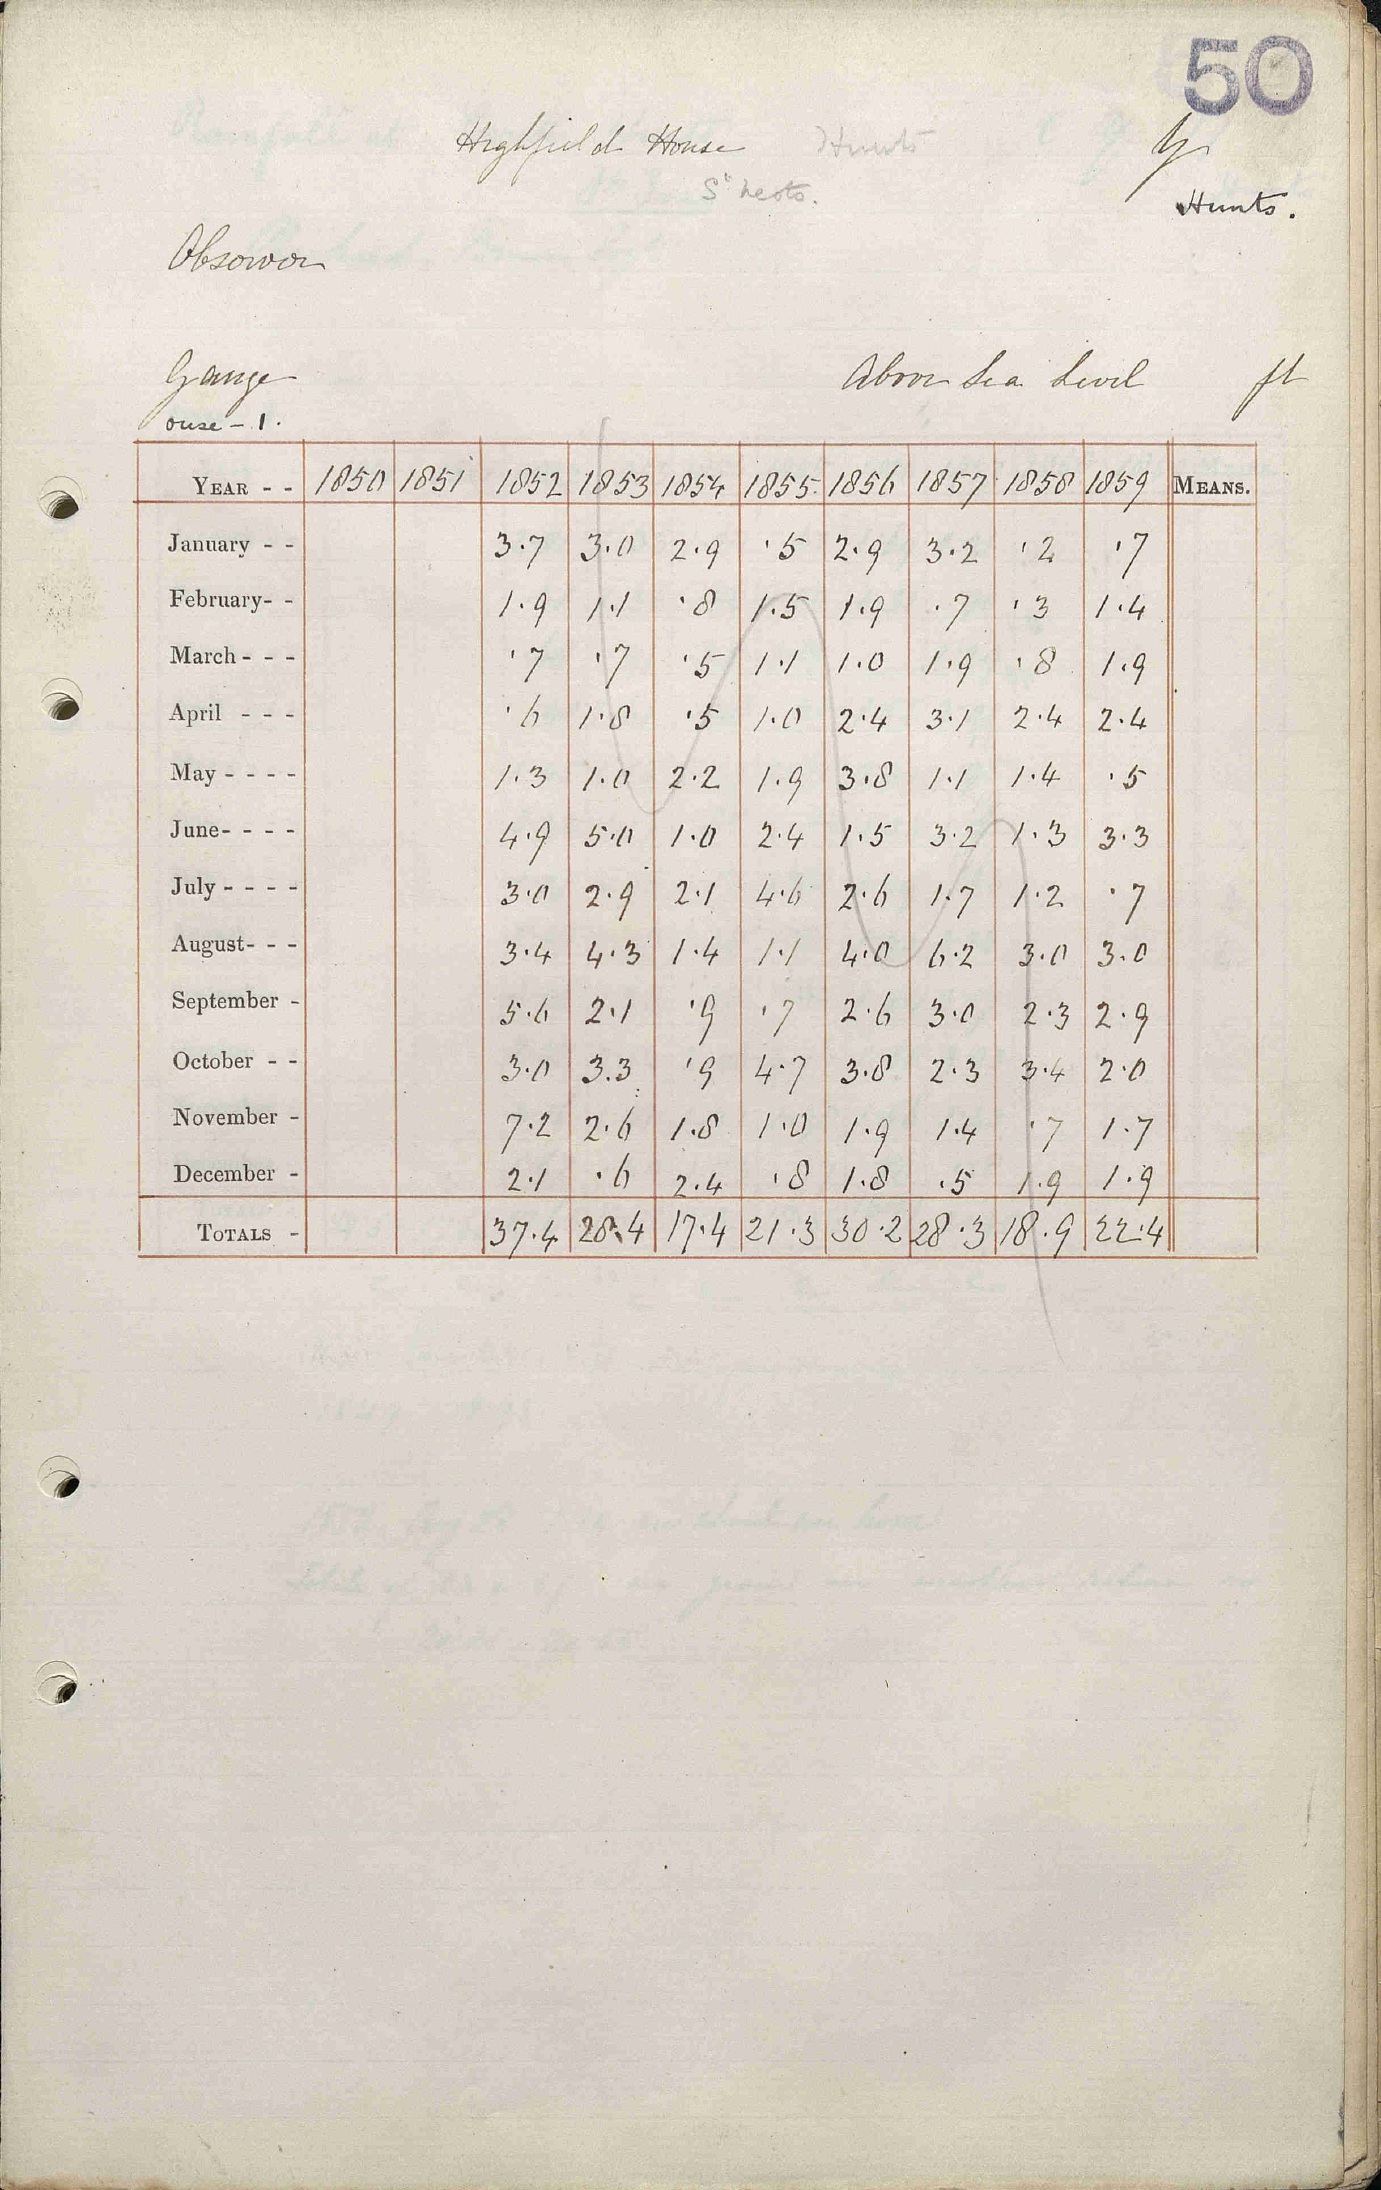 50
Highfield House Hunts
St Neots.
Hunts.
Observer
Gauge Above Sea Level ft
ouse - 1.
YEAR - - 1850 1851 1852 1853 1854 1855 1856 1857 1858 1859 MEANS.
January - - 3.7 3.0 2.9 .5 2.9 3.2 .2 .7
February- - 1.9 1.1 .8 1.5 1.9 .7 .3 1.4
March - - - .7 .7 .5 1.1 1.0 1.9 .8 1.9
April - - - .6 1.8 .5 1.0 2.4 3.1 2.4 2.4
May - - - - 1.3 1.0 2.2 1.9 3.8 1.1 1.4 .5
June- - - - 4.9 5.0 1.0 2.4 1.5 3.2 1.3 3.3
July - - - - 3.0 2.9 2.1 4.6 2.6 1.7 1.2 .7
August- - - 3.4 4.3 1.4 1.1 4.0 6.2 3.0 3.0
September - 5.6 2.1 .9 .7 2.6 3.0 2.3 2.9
October - - 3.0 3.3 .9 4.7 3.8 2.3 3.4 2.0
November - 7.2 2.6 1.8 1.0 1.9 1.4 .7 1.7
December - 2.1 .6 2.4 .8 1.8 .5 1.9 1.9
TOTALS - 37.4 28.4 17.4 21.3 30.2 28.3 18.9 22.4